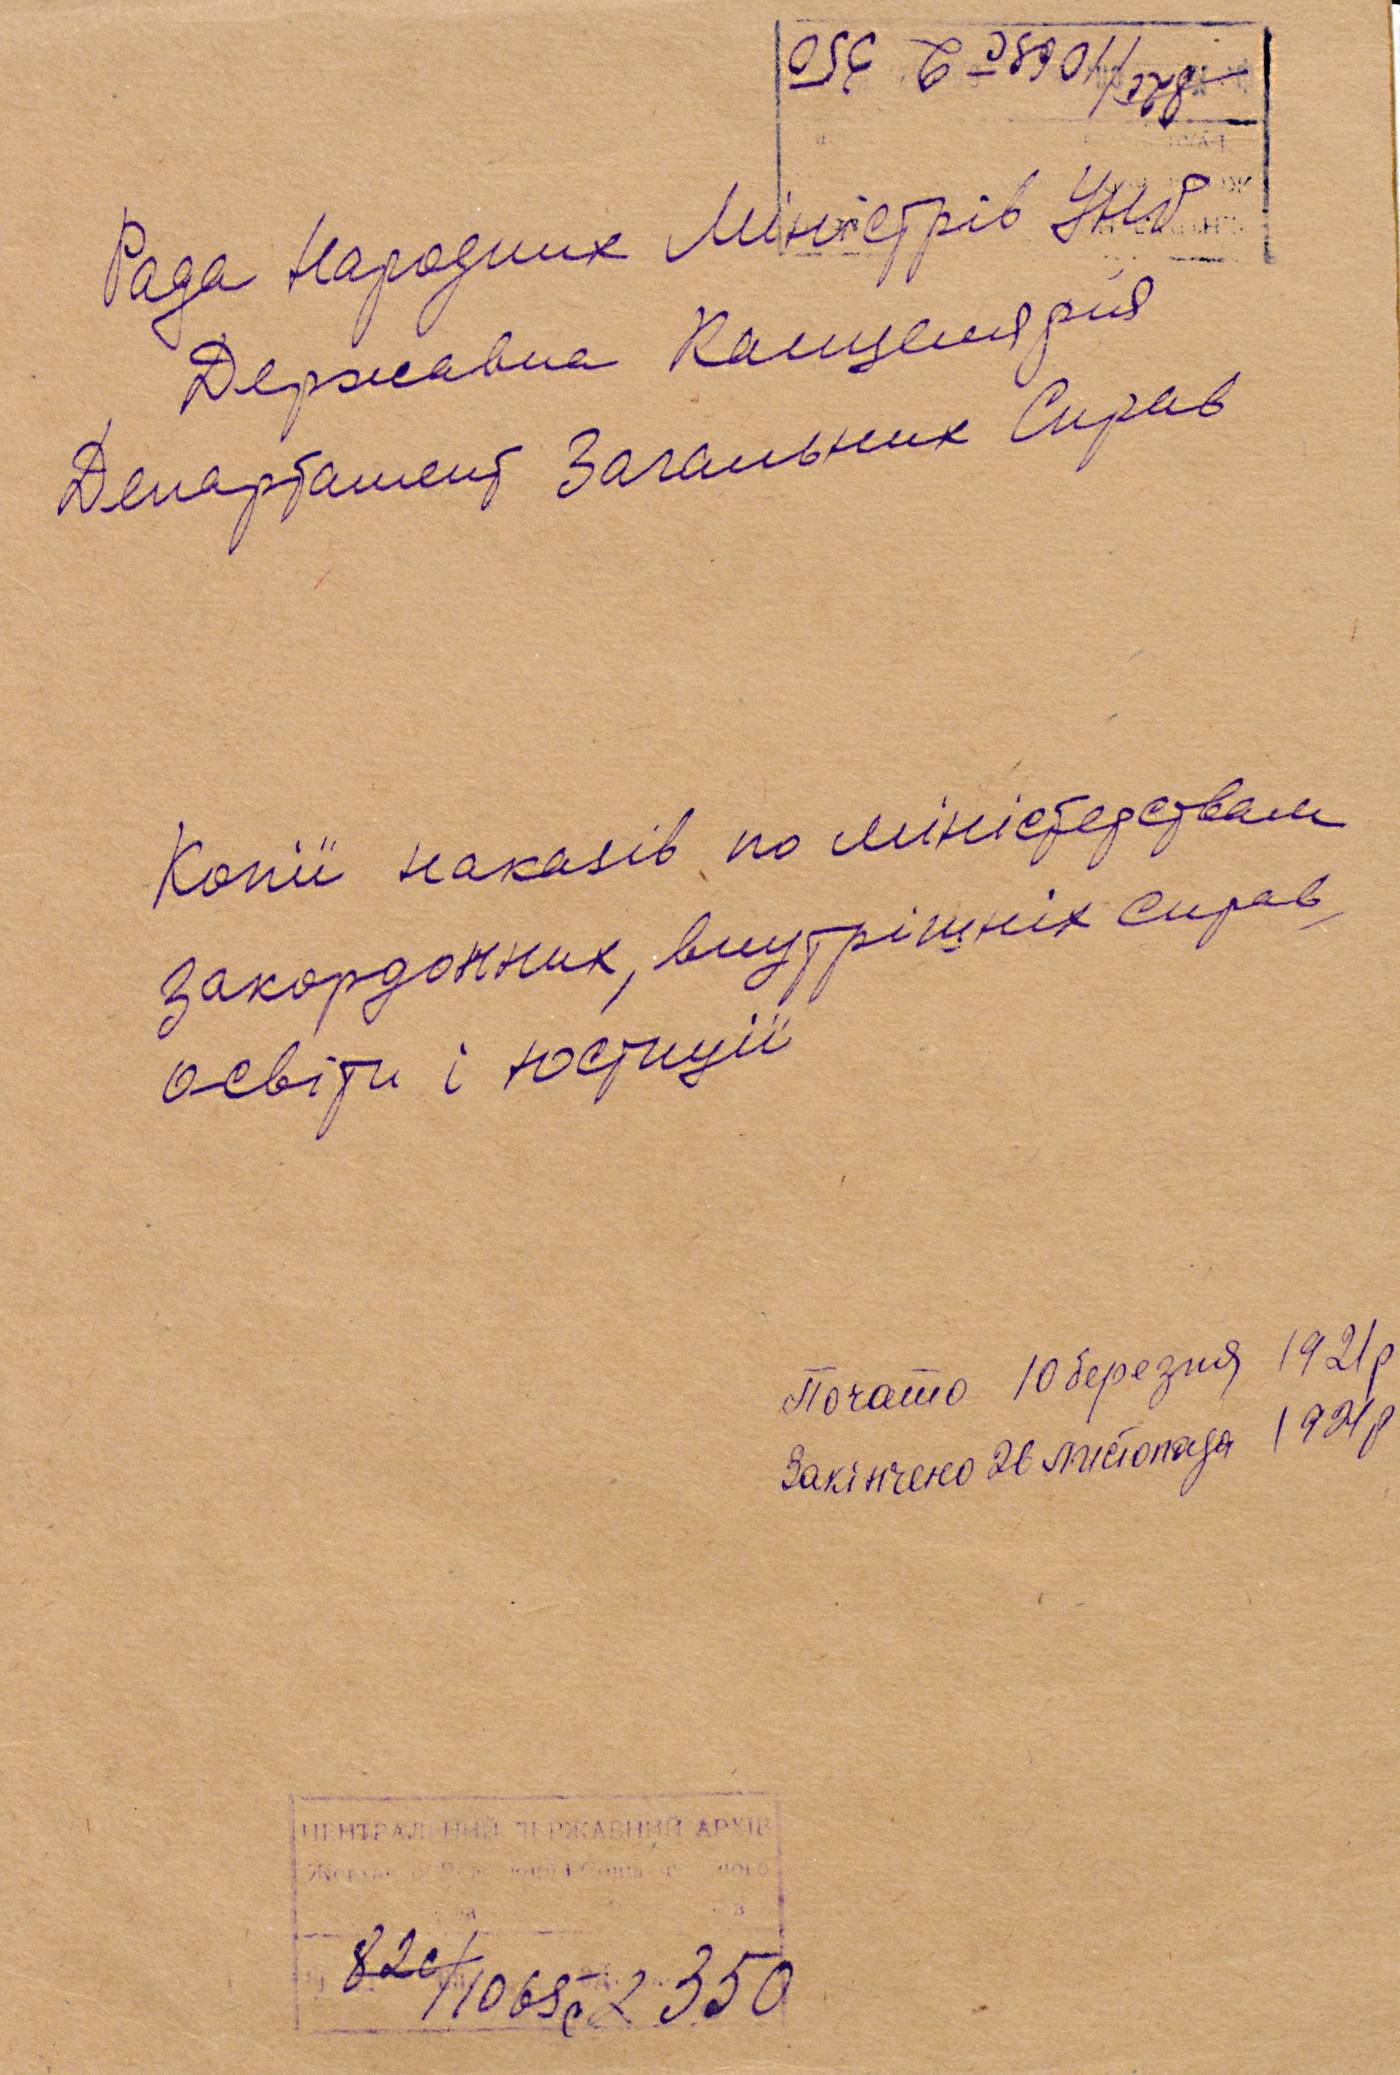 Рада Народних Міністрів УНР
Державна Канцелярія
Департамент Загальних Справ
Копії наказів по міністедствам
закордонних, внутрішніх справ,
освіти і юстиції
Почато 10 березня 1921р
Закінчено 26 листопада 1921р
ЦЕНТРАЛЬНИЙ ДЕРЖАВНИЙ АРХІВ
82с/1065с 2 350